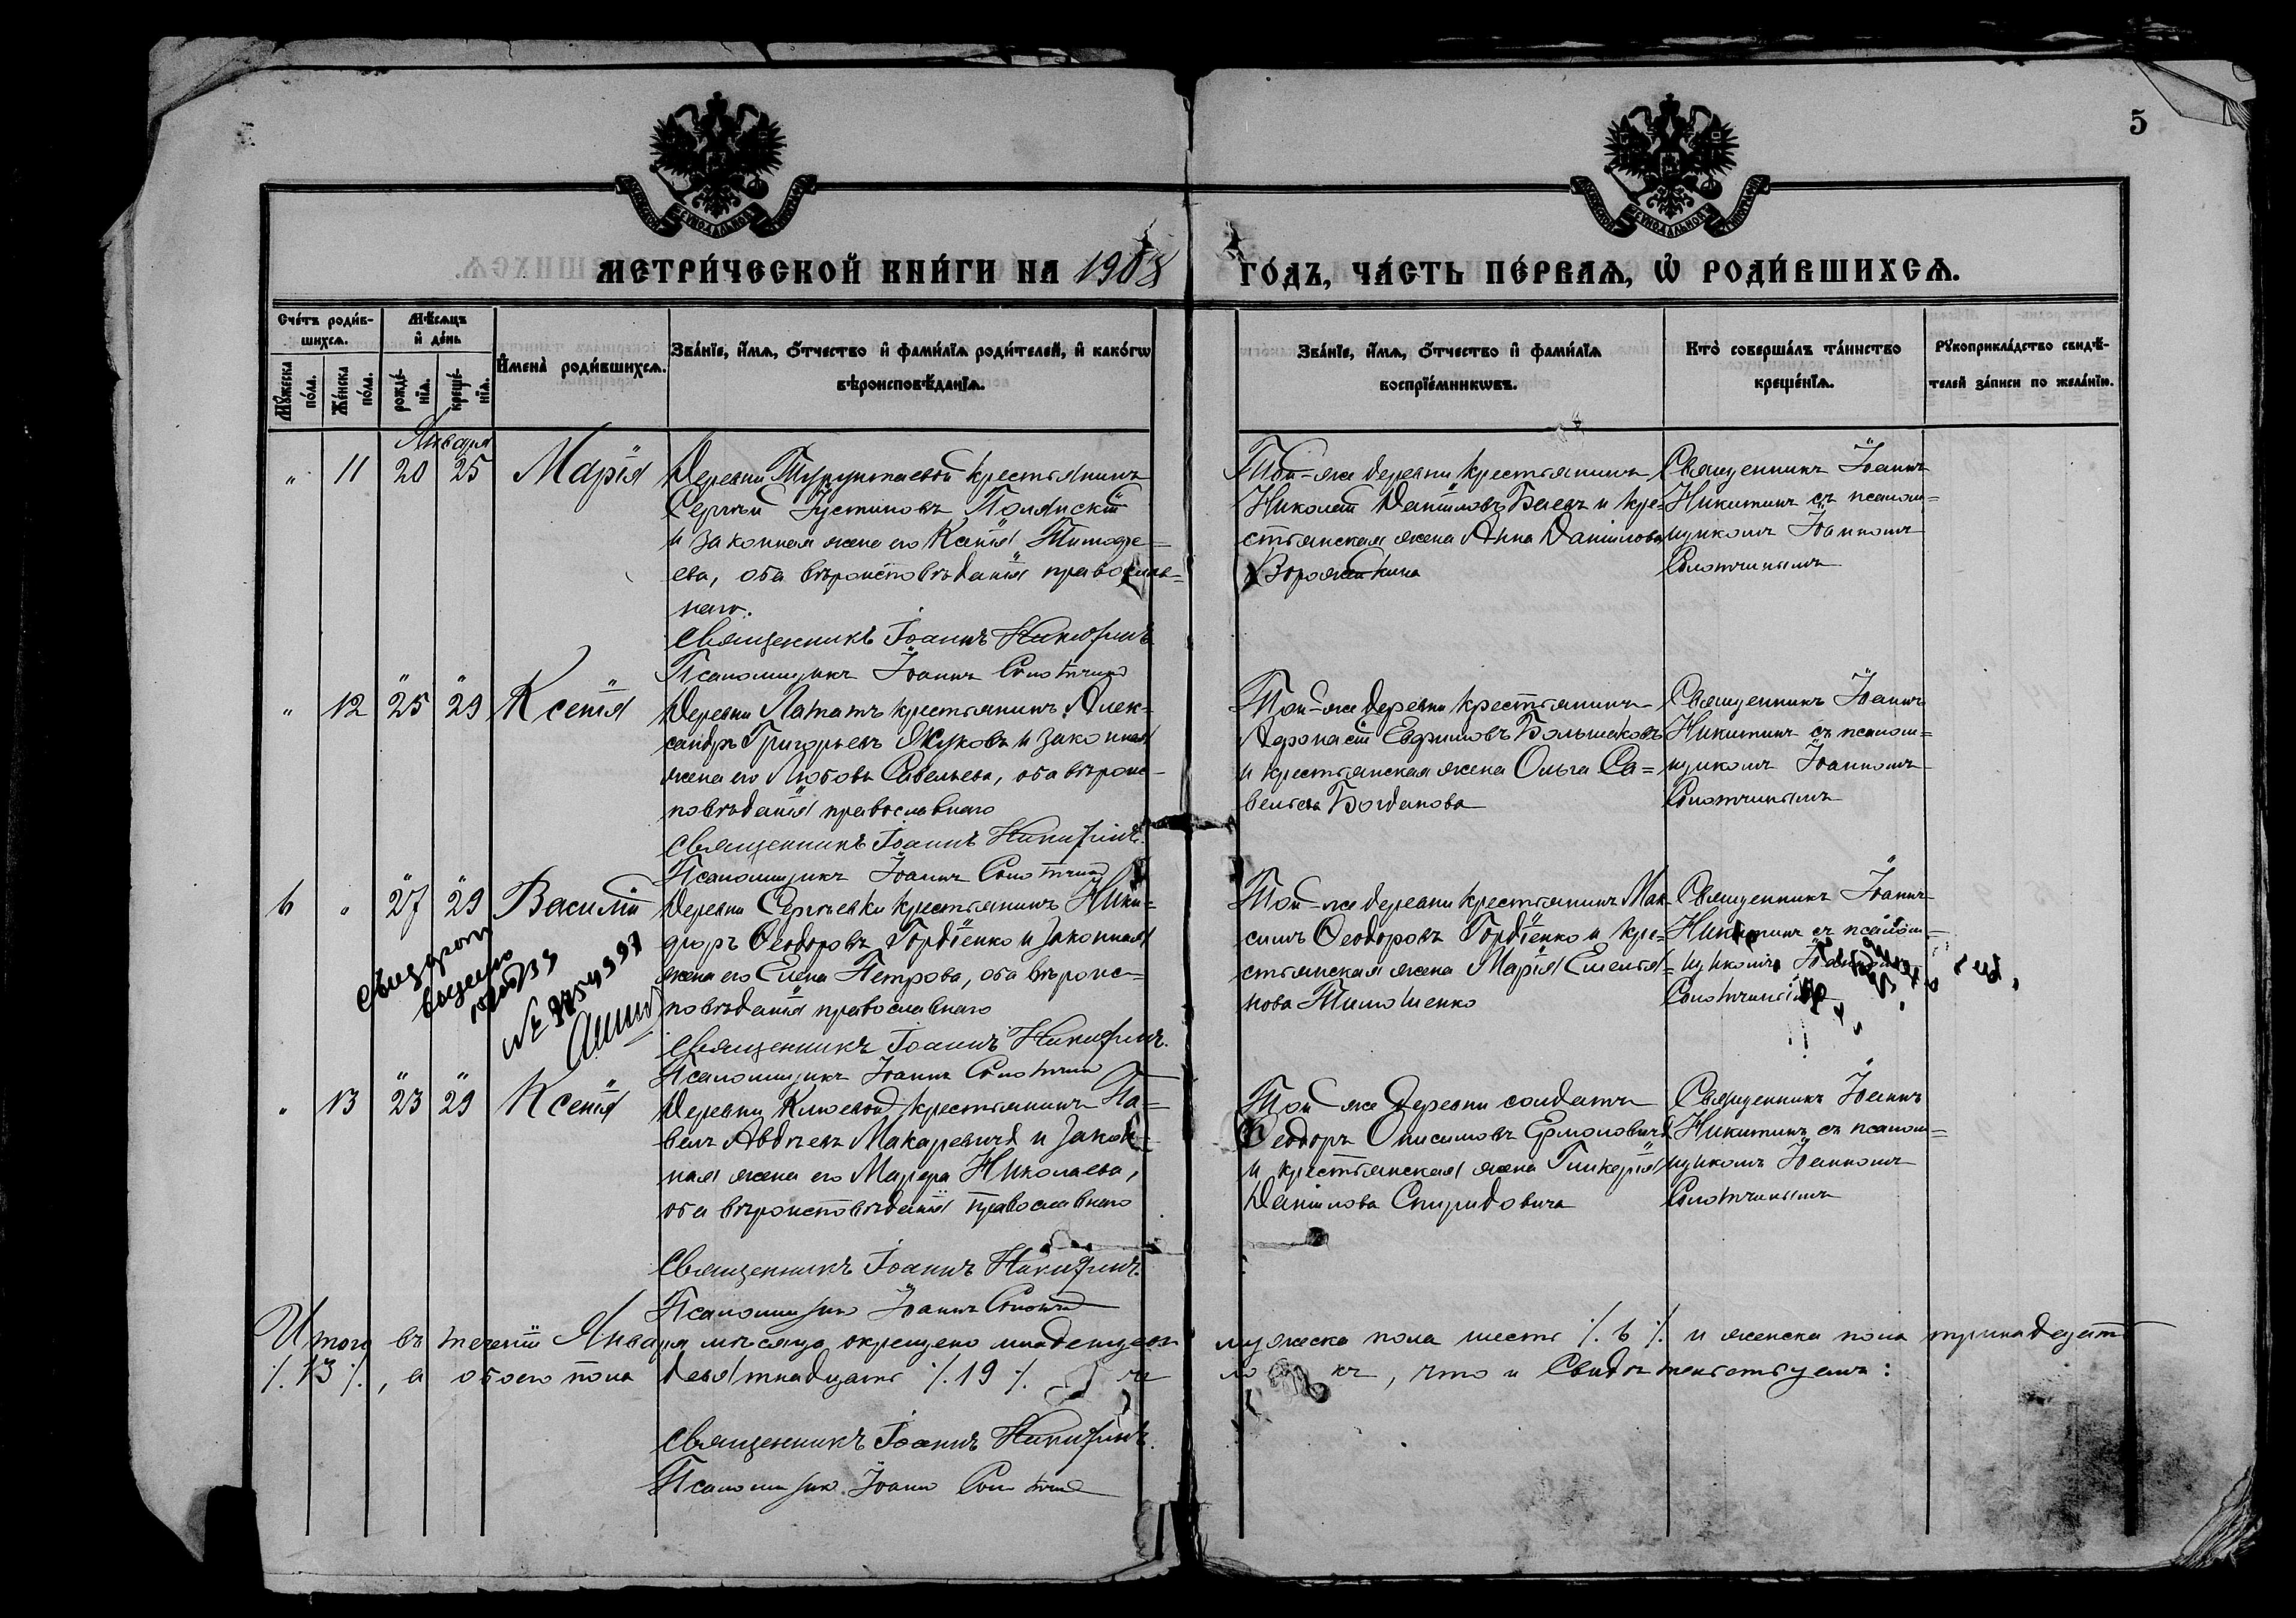 5
МЕТРИ́ЧЕСКОЙ КНИ́ГИ НА 1908 ГО́ДЪ, ЧА́СТЬ ПЕ́РВАѦ, Ѡ҆ РОДИ́ВШИХСѦ.
Сче́тъ роди́в-
шихсѧ.
Мѣ́сѧцъ
и҆ де́нь
Мꙋ́жеска по́ла.
Же́нска по́ла.
рожде́-
нїѧ.
креще́-
нїѧ.
И҆мена̀ роди́вшихсѧ.
Зва́нїе, и҆́мѧ, ѻ҆́тчество и҆ фами́лїѧ роди́телей, и҆ како́гѡ
вѣроисповѣ́данїѧ.
Зва́нїе, и҆́мѧ, ѻ҆́тчество и҆ фами́лїѧ
воспрїе́мникѡвъ.
Кто̀ соверша́лъ та́инство
креще́нїѧ.
Рꙋкоприкла́дство свидѣ́-
телей за́писи по жела́нїю.
Января
" 11 20 25 Марія
Деревни Турунтаевой крестьянинъ
Сергѣй Іустиновъ Полянскій
и законная жена его Ксенія Тимофе=
ева, оба вѣроисповѣданія православ=
наго.
Священникъ Іоаннъ Никитинъ
Псаломщикъ Іоаннъ Слотчинъ
Той-же деревни крестьянинъ
Николай Даніиловъ Баевъ и кре=
стьянская жена Анна Даніилова
Ворожейкина
Священникъ Іоаннъ
Никитинъ съ псалом=
щикомъ Іоанномъ
Слотчинымъ
" 12 25 29 Ксенія
Деревни Лататъ крестьянинъ Алек=
сандръ Григорьевъ Жуковъ и законная
жена его Любовь Савельева, оба вѣроис-
повѣданія православнаго
Священникъ Іоаннъ Никитинъ.
Псаломщикъ Іоаннъ Слотчинъ
Той-же деревни крестьянинъ
Афонасій Евфимовъ Большаковъ
и крестьянская жена Ольга Са=
вельева Богданова
Священникъ Іоаннъ
Никитинъ съ псалом=
щикомъ Іоанномъ
Слотчинымъ
6 " 27 29 Василій
Деревни Сергѣевки крестьянинъ Ники=
форъ Ѳеодоровъ Гордіенко и законная
жена его Елена Петрова, оба вѣроис-
повѣданія православнаго
Священникъ Іоаннъ Никитинъ.
Псаломщикъ Іоаннъ Слотчинъ
Той-же деревни крестьянинъ Мак
симъ Ѳеодоровъ Гордіенко и кре=
стьянская жена Марія Емелья=
нова Тимошенко
Священникъ Іоаннъ
Никитинъ съ псалом=
щикомъ Іоанномъ
Слотчинымъ
№
" 13 23 29 Ксенія
Деревни Ключевой крестьянинъ Па=
велъ Авдѣевъ Макаревичъ и закон-
ная жена его Марфа Николаева,
оба вѣроисповѣданія православнаго
Священникъ Іоаннъ Никитинъ.
Псаломщикъ Іоаннъ Слотчинъ
Той же деревни солдатъ
Ѳеодоръ Онисимовъ Ермоловичъ
и крестьянская жена Гликерія
Даніилова Спиридовича
Священникъ Іоаннъ
Никитинъ съ псалом=
щикомъ Іоанномъ
Слотчинымъ
Итого въ теченіи Января мѣсяца окрещено младенцевъ мужеска пола шесть /. 6 /. и женска пола тринадцать
/. 13 /., а обоего пола девятнадцать /. 19 /. что и свидѣтельствуемъ:
Священникъ Іоаннъ Никитинъ.
Псаломщикъ Іоаннъ Слотчинъ